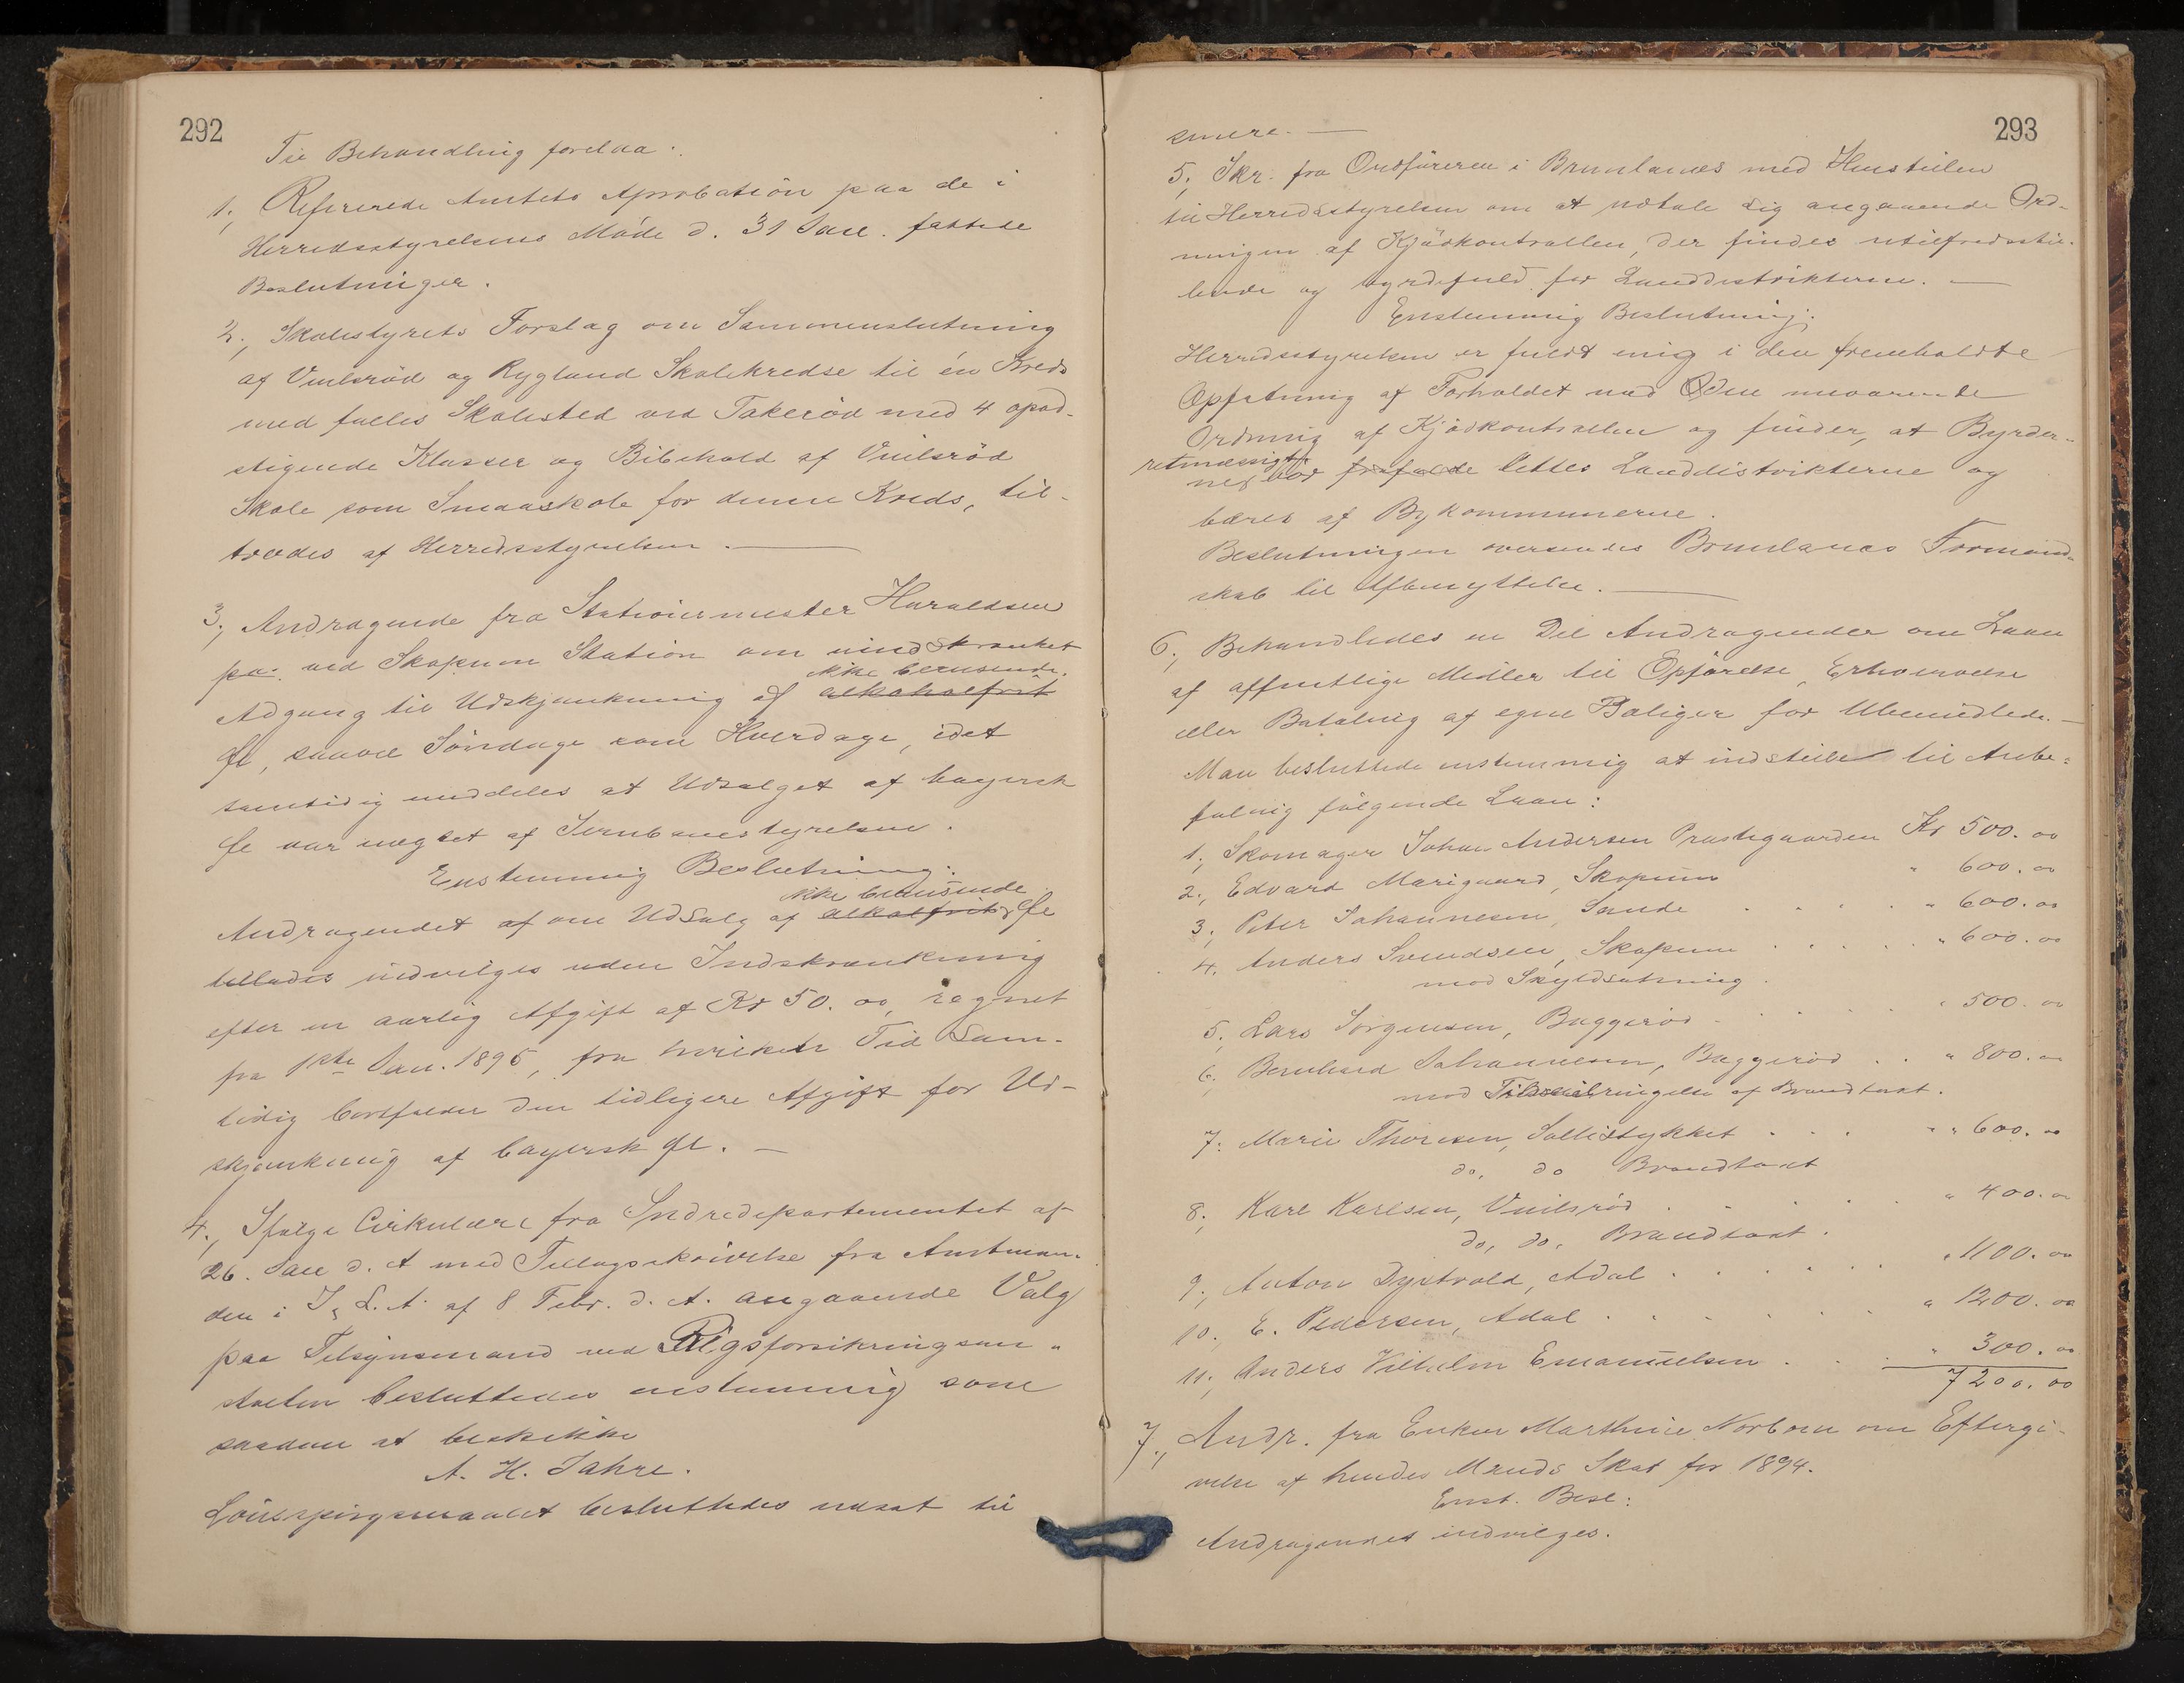 292
Til Behandling forelaa:
1; Refererede Amtets Aprobation paa de i
Herredsstyrelsens Møde d. 31 Jan. fattede
Beslutninger.
2; Skolestyrets Forslag om Sammenslutning
af Vinilsrød og Rygland Skolekredse til én Kreds
med fælles Skolested ved Takerød med 4 opad-
stigende Klasser og Bibehold af Vinilsrød
Skole som Smaaskole for denne Kreds, til-
trædes af Herredsstyrelsen.
3; Andragende fra Stationsmester Haraldsen
paa ved Skopum Station om uindskrænket
ikke berusende
Adgang til Udskjænkning af alkoholfrit
Øl, saavel Søndage som Hverdage, idet
samtidig meddeles at Udsalget af bayersk
Øl var negtet af Jernbanestyrelsen.
Enstemmig Beslutning:
ikke berusende
Andragendet af om Udsalg af alkolfrit Øl
tillades indvilges uden Indskrænkning
efter en aarlig Afgift af Kr 50.00, regnet
fra 1ste Jan. 1895, fra hvilken Tid sam-
tidig bortfalder den tidligere Afgift for Ud-
skjænkning af bayersk Øl.
4; Ifølge Cirkulære fra Indredepartementet af
26. Jan d. A med Tillægsskrivelse fra Amtman-
den i J. & L. A. af 8 Febr. d. A. angaaende Valg
paa Tilsynsmand ved Rigsforsikringsan-
stalten besluttedes enstemmig som
saadan at beskikke
A. H. Jahre.
Lönsspörgsmaalet besluttedes udsat til
293
senere.
5; Skr. fra Ordføreren i Brunlanes med Henstillen
til Herredsstyrelsen om at udtale sig angaaende Ord-
ningen af Kjødkontrollen, der findes utilfredsstil-
lende og byrdefuld for Landdistrikterne.
Enstemmig Beslutning:
Herredsstyrelsen er fuldt enig i den fremholdte
Opfatning af Forholdet med den nuværende
Ordning af Kjødkontrollen og finder, at Byrder-
retmæssigt
ne bør frafalde lettes Landdistrikterne og
bæres af Bykommunerne.
Beslutningen oversendes Brunlanes Formand-
skab til Afbenyttelse.
6; Behandledes en Del Andragender om Laan
af offentlige Midler til Opførelse, Erhvervelse
eller Betaling af egne Boliger for Ubemidlede.
Man besluttede enstemmig at indstille til Anbe-
faling følgende Laan:
1; Skomager Johan Andersen Prestegaarden Kr 500.00
2; Edvard Marigaard, Skopum " 600.00
3; Peter Johannesen, Sande " 600.00
4. Anders Svendsen, Skopum " 600.00
mod Skyldsætning.
5; Lars Jørgensen, Buggerød " 500.00
6; Bernhard Johannesen, Buggerød " 800.00
mod Tilveiebringelse af Brandtaxt.
7; Marie Thoresen, Sollistykket " 600.00
do, do Brandtaxt
8; Karl Karlsen, Vinilsrød " 400.00
do, do, Brandtaxt.
9; Anton Dystvold, Adal " 1100.00
10; E. Pedersen, Adal " 1200.00
11; Anders Vilhelm Emanuelsen " 300.00
7200.00
7; Andr. fra Enken Marthine Norbom om Eftergi-
velse af hendes Mands Skat for 1894.
Enst. Besl:
Andragendet indvilges.